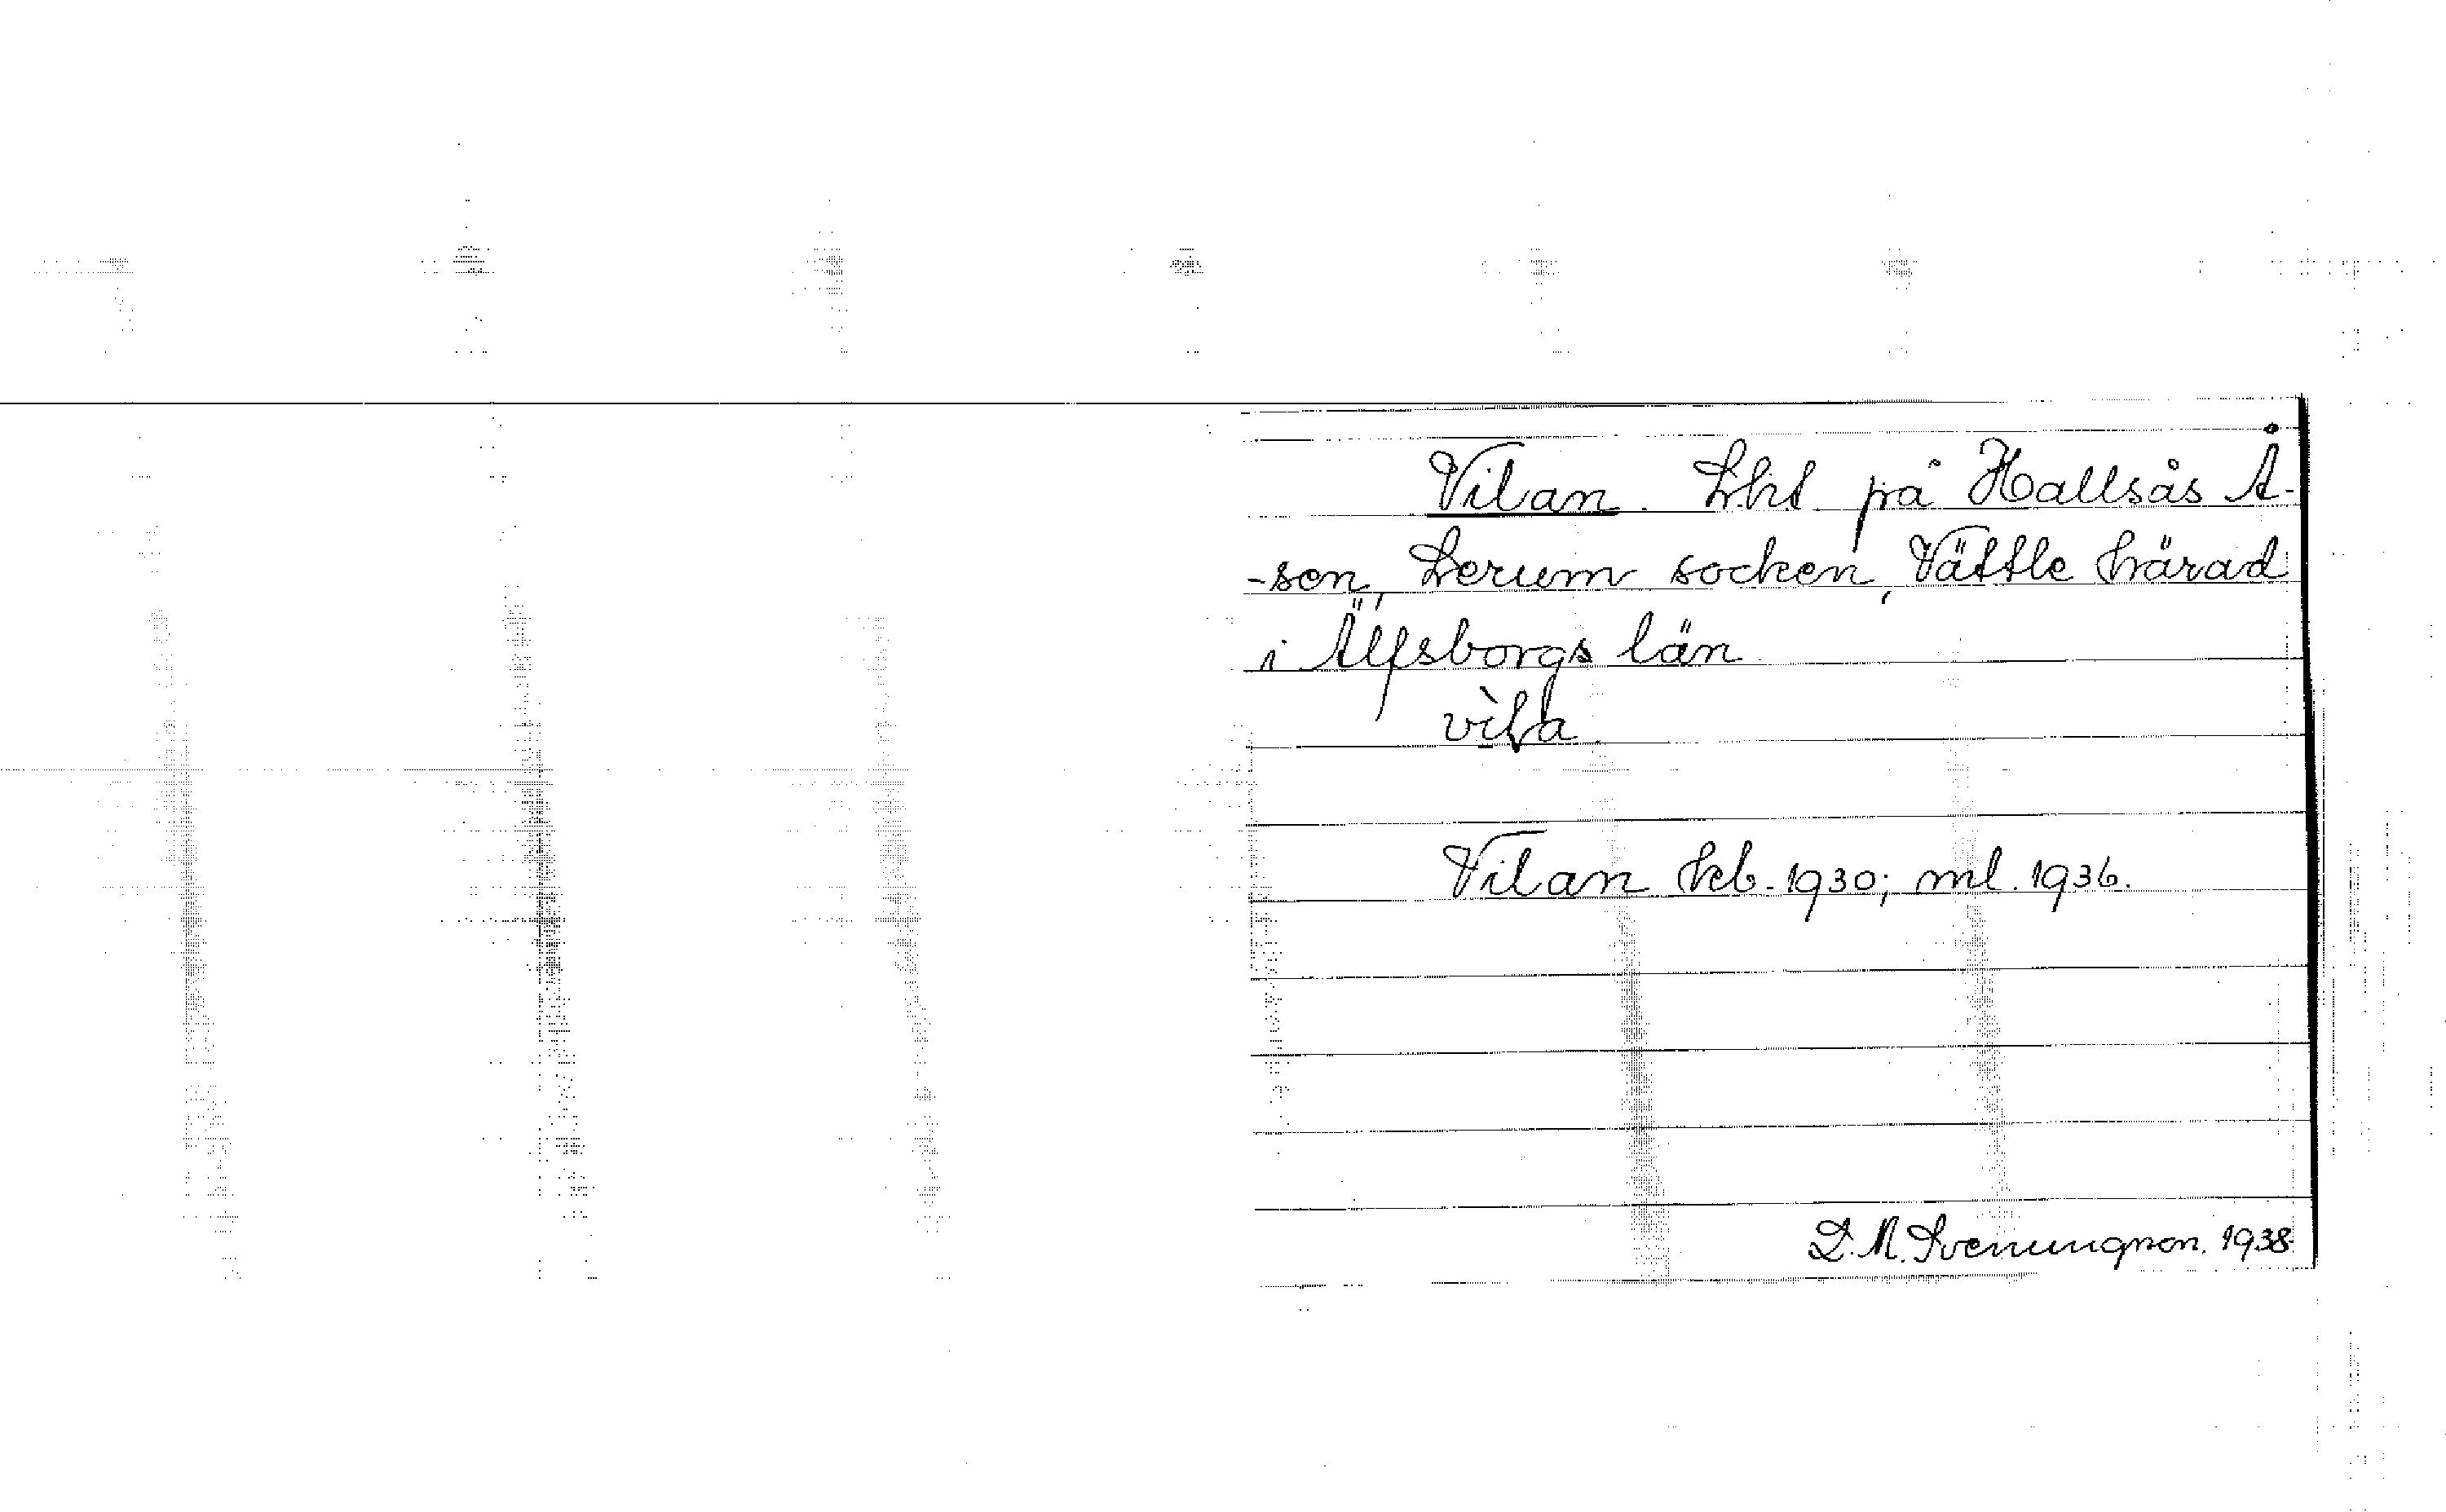 Vilan. Lht på Hallsås Å-
-sen, Lerum socken, Vättle härad
i Älfsborgs län.
Vilan hcb. 1930; ml. 1936.
D. M. Svenungson. 1938